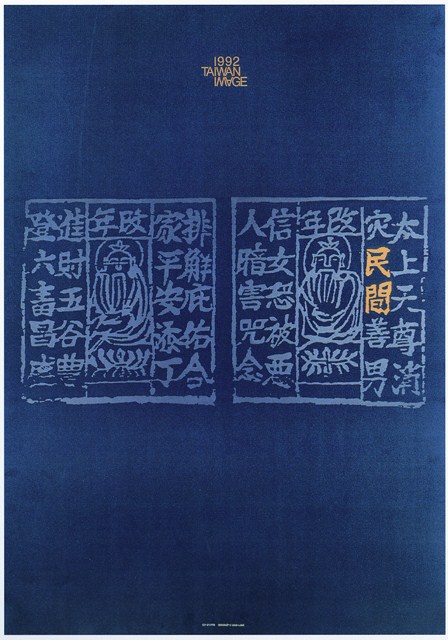 1992
TAIWAN
IMAGE
太上天尊消
災民間善男
改年
信女恐被惡
人暗害咒念
排解庇佑合
家平安添丁
改年
進財五谷豊
登六畜昌盛